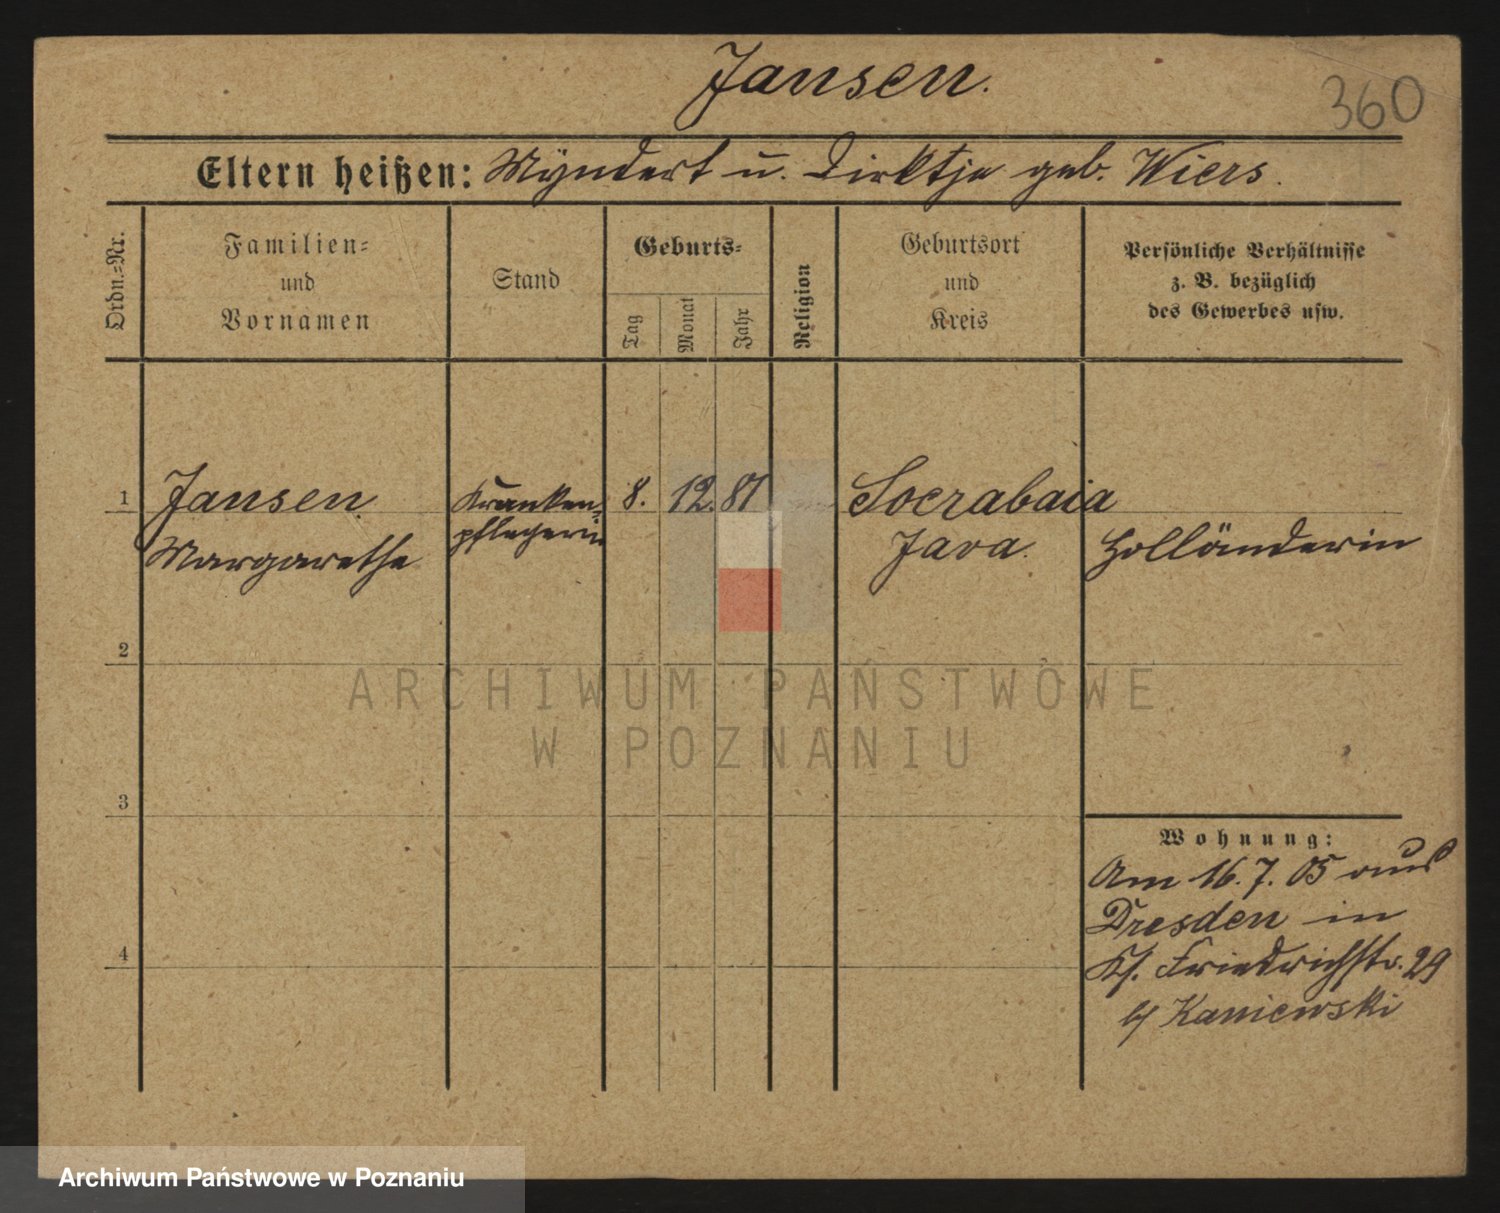 Jansen.
360
Eltern heißen: Myndert u. Dirktje geb. Wiers.
Ordn.=Nr.
Familien=
und
Vornamen
Stand
Geburts=
Tag
Monat
Jahr
Religion
Geburtsort
und
Kreis
Persönliche Verhältnisse
z. B. bezüglich
des Gewerbes usw.
1 Jansen Kranken= 8. 12. 81 Soerabaia
Margarethe pflegerin Java. Holländerin
2
3
4
Wohnung:
Am 16. 7. 05 aus
Dresden in
Friedrichstr. 29
b/ Kaniewski
ARCHIWUM PAŃSTWOWE
W POZNANIU
Archiwum Państwowe w Poznaniu